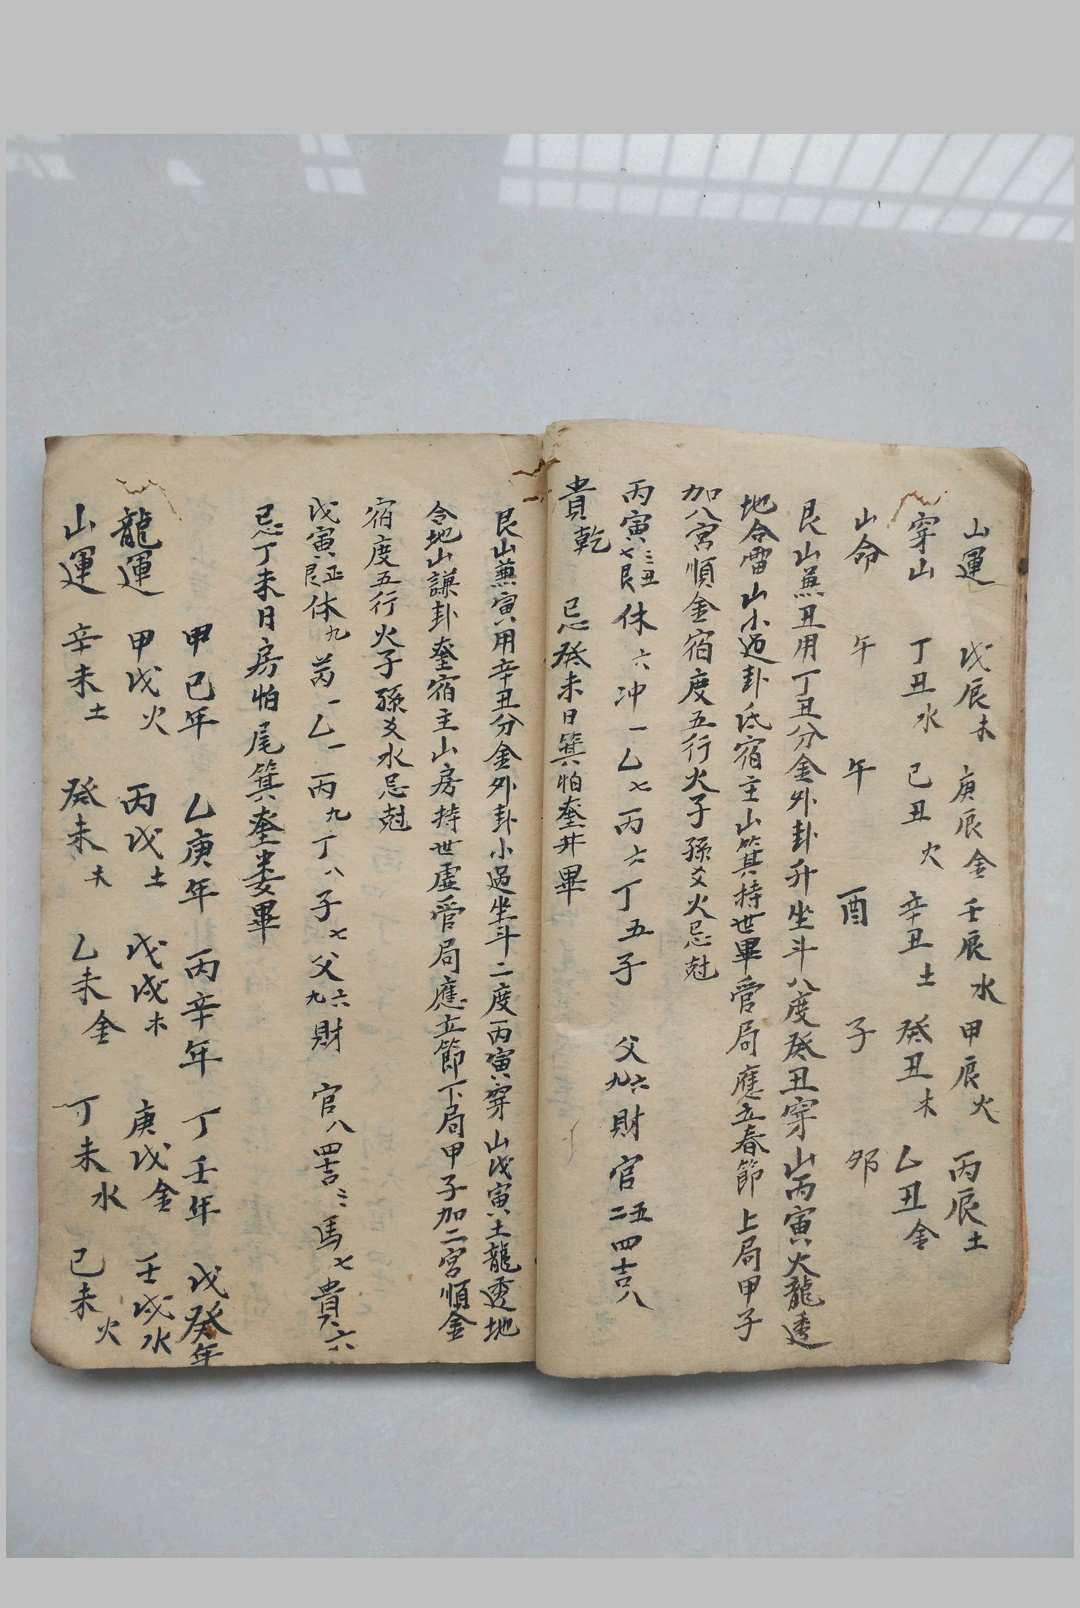 山運 戊辰木 庚辰金 壬辰水 甲辰火 丙辰土
穿山 丁丑水 己丑火 辛丑土 癸丑木 乙丑金
山命 午 午 酉 子 夘
艮山兼丑用丁丑分金外卦升坐斗八度癸丑穿山丙寅火龍透
地合雷山小過卦氐宿主山箕持世畢管局應立春節上局甲子
加八宮順金宿度五行火子孫爻火忌尅
丙寅三丑七艮休六冲一乙七丙六丁五子 父六九財 官五二四吉八
貴乾 忌癸未日箕怕奎井畢
艮山兼寅用辛丑分金外卦小過坐斗二度丙寅穿山戊寅土龍透地
令地山謙卦奎宿主山房持世虛管局應立節下局甲子加二宮順金
宿度五行火子孫爻水忌尅
戊寅正艮休九芮一乙一丙九丁八子七父六九財 官八四吉三馬七貴六
忌丁未日房怕尾箕奎婁畢
甲己年 乙庚年 丙辛年 丁壬年 戊癸年
龍運 甲戌火 丙戌土 戊戌木 庚戌金 壬戌水
山運 辛未土 癸未木 乙未金 丁未水 己未火